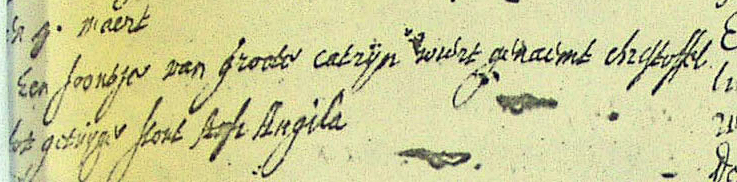 9. maert
Een soontje van Groote catrijn wiert genaemt christoffel
tot getuyge stont Ansla Angila